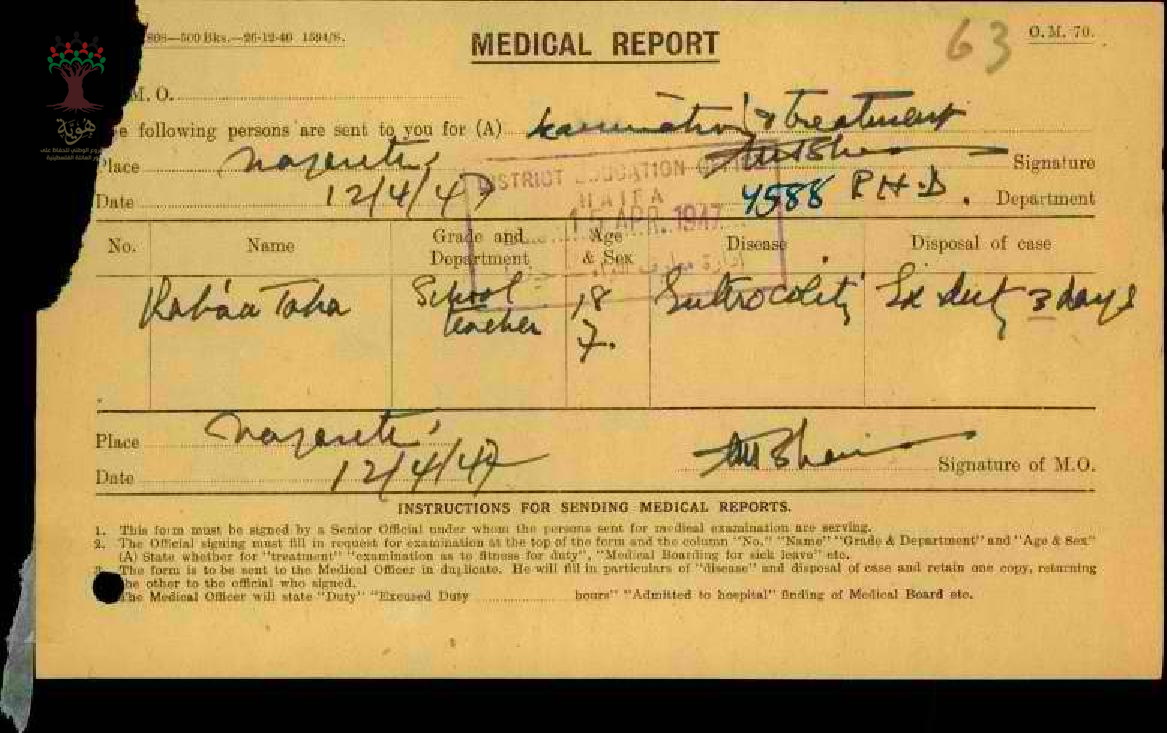 808—500 Bks.—26-12-46 1594/S.
MEDICAL REPORT
63
O.M. 70.
M. O.
e following persons are sent to you for (A) Examination & treatment
Place Nazareth
Signature
Date 12/4/47
4588 P.H.D. Department
DISTRICT EDUCATION OFFICE
HAIFA
15 APR. 1947
No. Name Grade and Department Age & Sex Disease Disposal of case
Rabáa Taha School teacher 18 F. Enterocolitis Ex duty 3 days
Place Nazareth
Date 12/4/47
Signature of M.O.
INSTRUCTIONS FOR SENDING MEDICAL REPORTS.
1. This form must be signed by a Senior Official under whom the persons sent for medical examination are serving.
2. The Official signing must fill in request for examination at the top of the form and the column "No." "Name" "Grade & Department" and "Age & Sex"
(A) State whether for "treatment" "examination as to fitness for duty", "Medical Boarding for sick leave" etc.
The form is to be sent to the Medical Officer in duplicate. He will fill in particulars of "disease" and disposal of case and retain one copy, returning
the other to the official who signed.
The Medical Officer will state "Duty" "Excused Duty hours" "Admitted to hospital" finding of Medical Board etc.
هوية